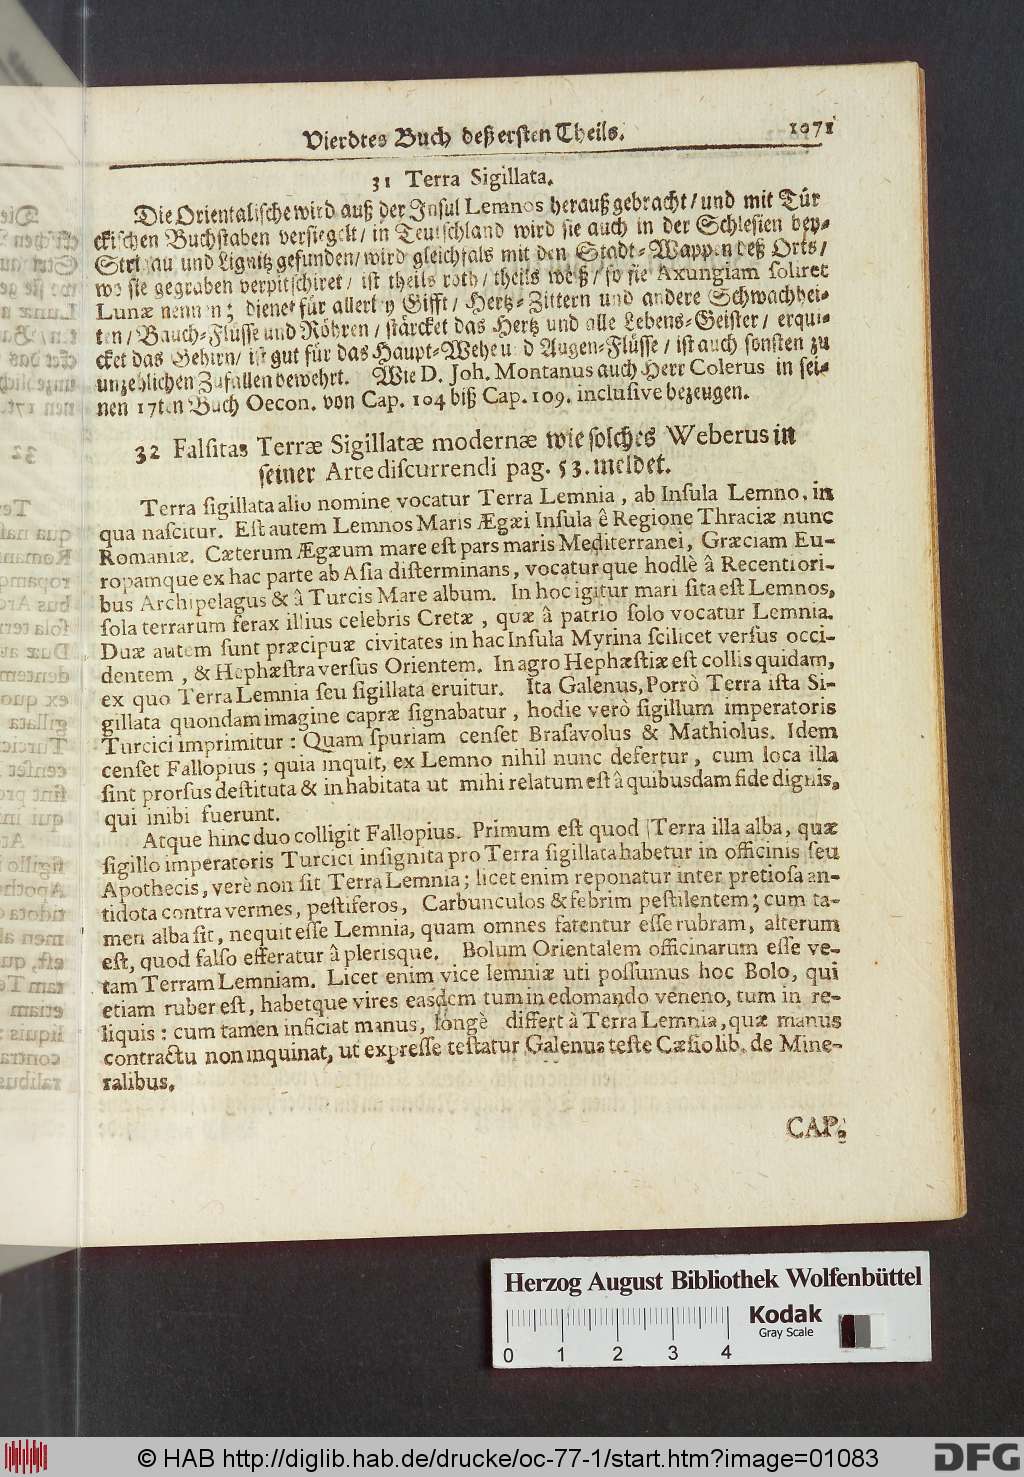 Vierdtes Buch deß ersten Theils. 1071
31 Terra Sigillata.
Die Orientalische wird auß der Insul Lemnos herauß gebracht / und mit Tür
ckischen Buchstaben versiegelt / in Teutschland wird sie auch in der Schlesien bey-
Strigau und Lignitz gefunden / wird gleichfals mit den Stadt-Wappen deß Orts /
wo sie gegraben verpitschiret / ist theils roth / theils weiß / so sie Axungiam soliret
Lunæ nennen; dienet für allerley Gifft / Hertz-Zittern und andere Schwachhei-
ten / Bauch-Flüsse und Röhren / stärcket das Hertz und alle Lebens-Geister / erqui-
cket das Gehirn / ist gut für das Haupt-Wehe und Augen-Flüsse / ist auch sonsten zu
unzehlichen Zufallen bewehrt. Wie D. Joh. Montanus auch Herr Colerus in sei-
nen 17ten Buch Oecon. von Cap. 104 biß Cap. 109. inclusive bezeugen.
32 Falsitas Terræ Sigillatæ modernæ wie solches Weberus in
seiner Arte discurrendi pag. 53. meldet.
Terra sigillata alio nomine vocatur Terra Lemnia, ab Insula Lemno, in
qua nascitur. Est autem Lemnos Maris Ægæi Insula ê Regione Thraciæ nunc
Romaniæ. Cæterum Ægæum mare est pars maris Mediterranei, Græciam Eu-
ropamque ex hac parte ab Asia disterminans, vocaturque hodlè â Recentiori-
bus Archipelagus & â Turcis Mare album. In hoc igitur mari sita est Lemnos,
sola terrarum ferax illius celebris Cretæ, quæ â patrio solo vocatur Lemnia.
Duæ autem sunt præcipuæ civitates in hac Insula Myrina scilicet versus occi-
dentem, & Hephæstra versus Orientem. In agro Hephæstiæ est collis quidam,
ex quo Terra Lemnia seu sigillata eruitur. Ita Galenus, Porrò Terra ista Si-
gillata quondam imagine capræ signabatur, hodie verò sigillum imperatoris
Turcici imprimitur: Quam spuriam censet Brasavolus & Mathiolus. Idem
censet Fallopius; quia inquit, ex Lemno nihil nunc defertur, cum loca illa
sint prorsus destituta & inhabitata ut mihi relatum est â quibusdam fide dignis,
qui inibi fuerunt.
Atque hinc duo colligit Fallopius. Primum est quod Terra illa alba, quæ
sigillo imperatoris Turcici insignita pro Terra sigillata habetur in officinis seu
Apothecis, verè non sit Terra Lemnia; licet enim reponatur inter pretiosa an-
tidota contra vermes, pestiferos, Carbunculos & febrim pestilentem; cum ta-
men alba sit, nequit esse Lemnia, quam omnes fatentur esse rubram, alterum
est, quod falso efferatur â plerisque. Bolum Orientalem officinarum esse ve-
tam Terram Lemniam. Licet enim vice lemniæ uti possumus hoc Bolo, qui
etiam ruber est, habetque vires easdem tum in edomando veneno, tum in re-
liquis: cum tamen inficiat manus, longè differt à Terra Lemnia, quæ manus
contractu non inquinat, ut expresse testatur Galenus teste Cæsio lib. de Mine-
ralibus.
CAP.
Herzog August Bibliothek Wolfenbüttel
Kodak
Gray Scale
0 1 2 3 4
© HAB http://diglib.hab.de/drucke/oc-77-1/start.htm?image=01083
DFG